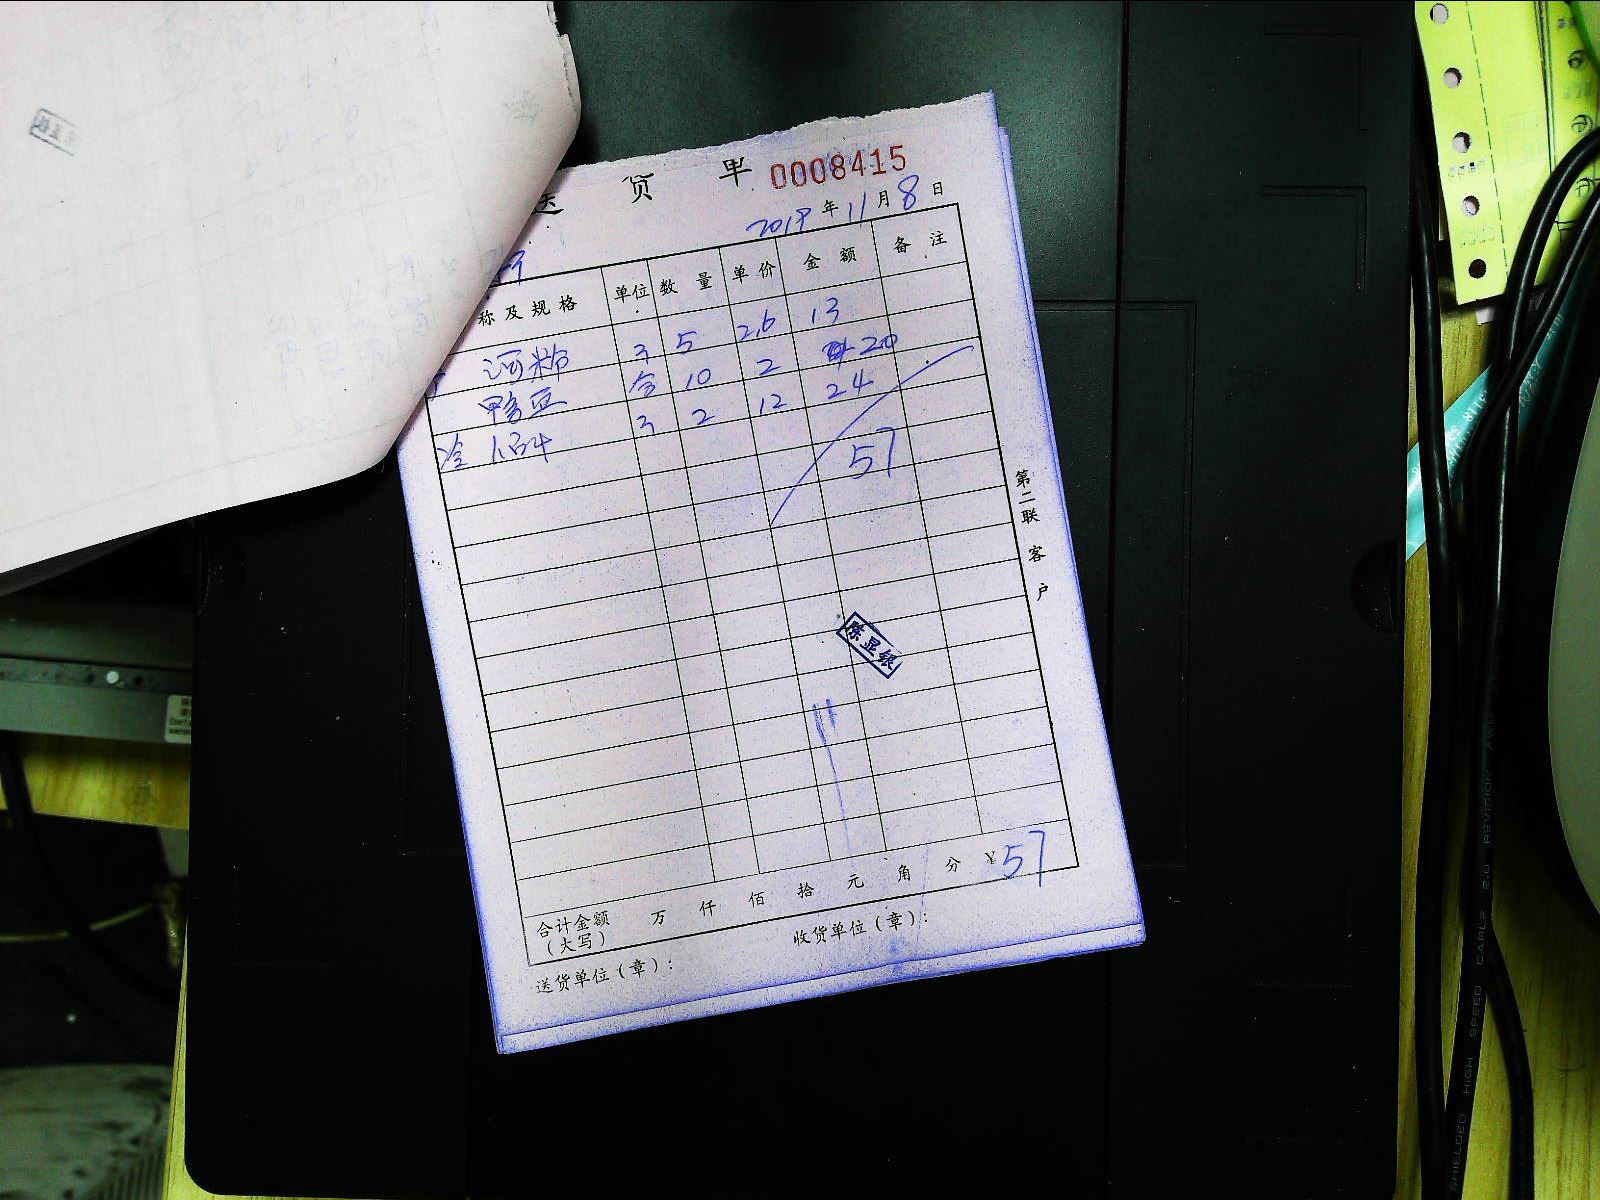 送 货 单 0008415
2019 年 11 月 8 日
称及规格 单位 数量 单价 金额 备注
河粉 3 5 2.6 13
鸭豆 10 2 20
冷 3 2 12 24
57
陈显银
第二联 客户
合计金额(大写) 万 仟 佰 拾 元 角 分 ¥57
送货单位(章): 收货单位(章):